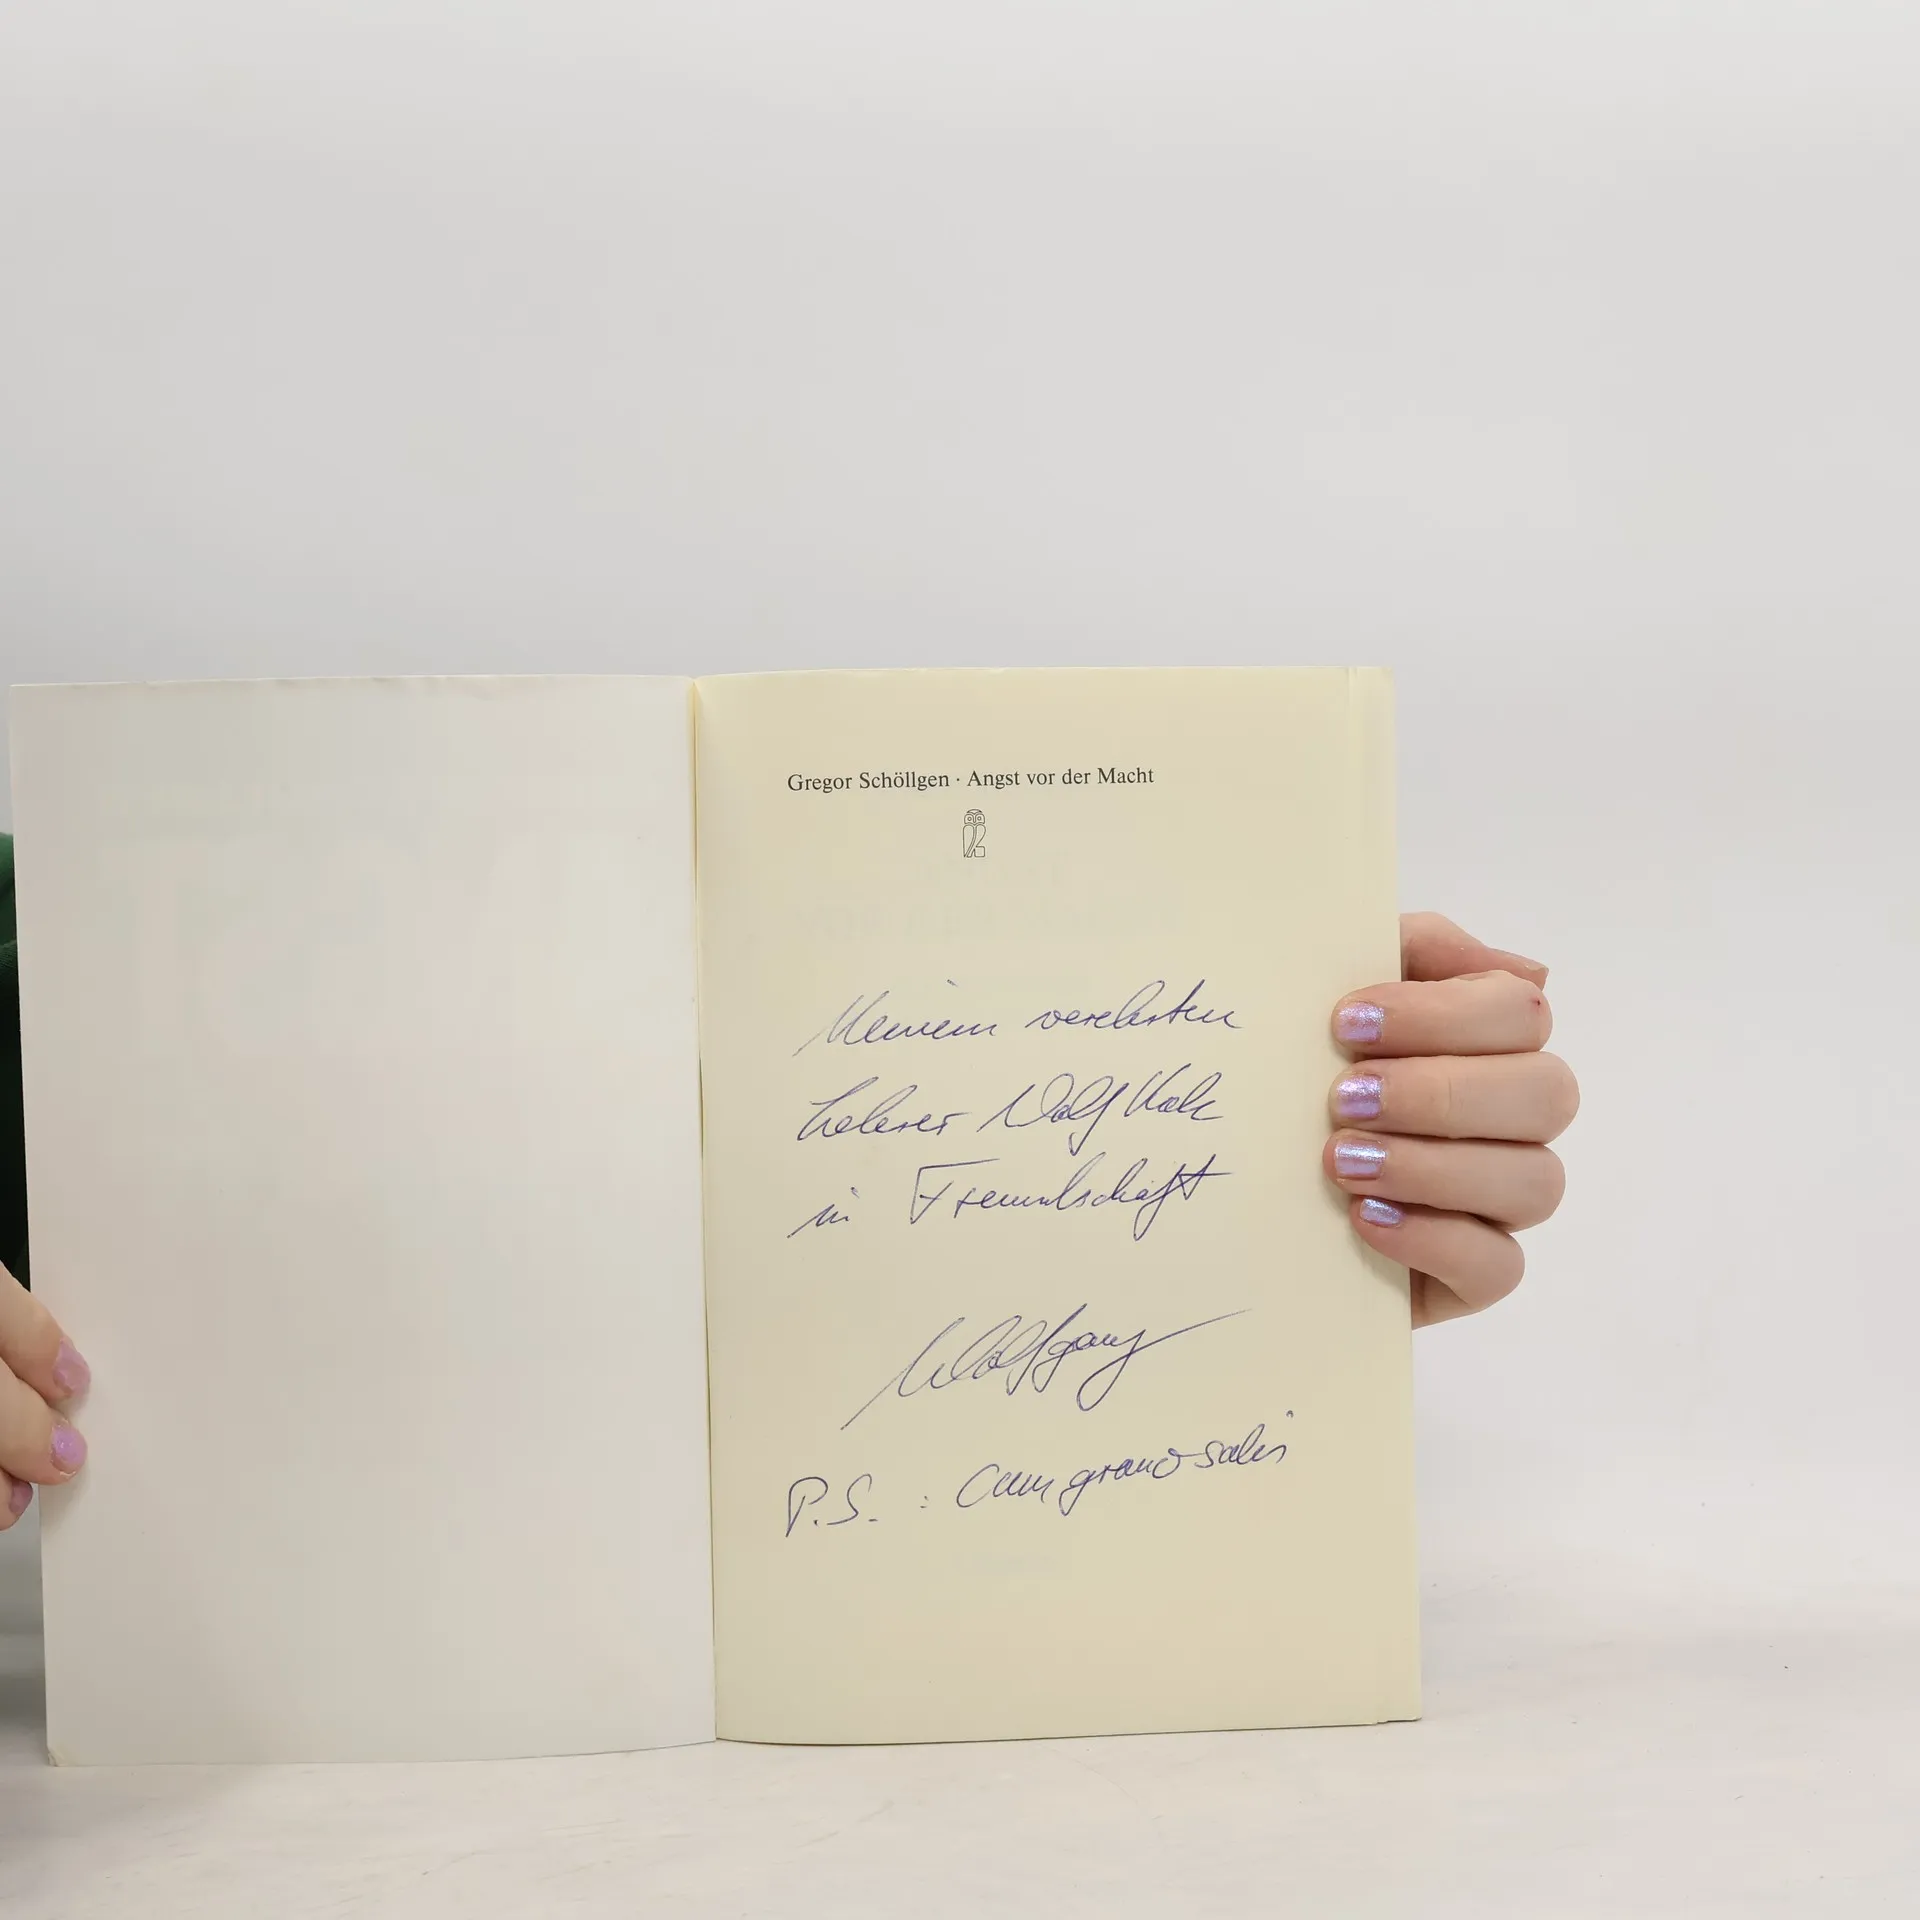 Gregor Schöllgen · Angst vor der Macht
Meinem verehrten
Lehrer Wolf
in Freundschaft
Wolfgang
P.S. : Cum grano salis